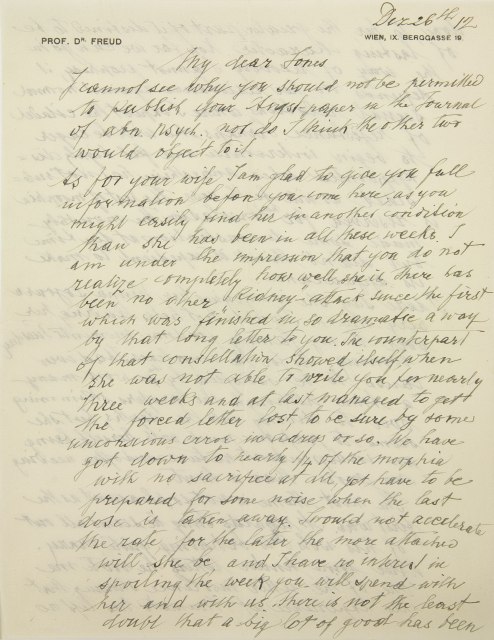 Dez 26th 12
PROF. DR. FREUD
WIEN, IX. BERGGASSE 19.
My dear Jones
I cannot see why you should not be permitted
to publish your Angst-paper in the Journal
of abn Psych. nor do I think the other two
would object to it.
As for your wife I am glad to give you full
information before you come here, as you
might easily find her in another condition
than she has been in all these weeks. I
am under the impression that you do not
realize completely how well she is. there has
been no other "Kidney"-attack since the first
which was finished in so dramatic a way
by that long letter to you. The counterpart
of that constellation showed itself when
she was not able to write you for nearly
three weeks and at last managed to get
the forced letter lost, to be sure by some
unconscious error in adress or so. We have
got down to nearly 1/4 of the morphia
with no sacrifice at all, yet have to be
prepared for some noise when the last
dose is taken away. I would not accelerate
the rate for the later the more attached
will she be, and I have no interest in
spoiling the week you will spend with
her and with us. there is not the least
doubt that a big lot of good has been